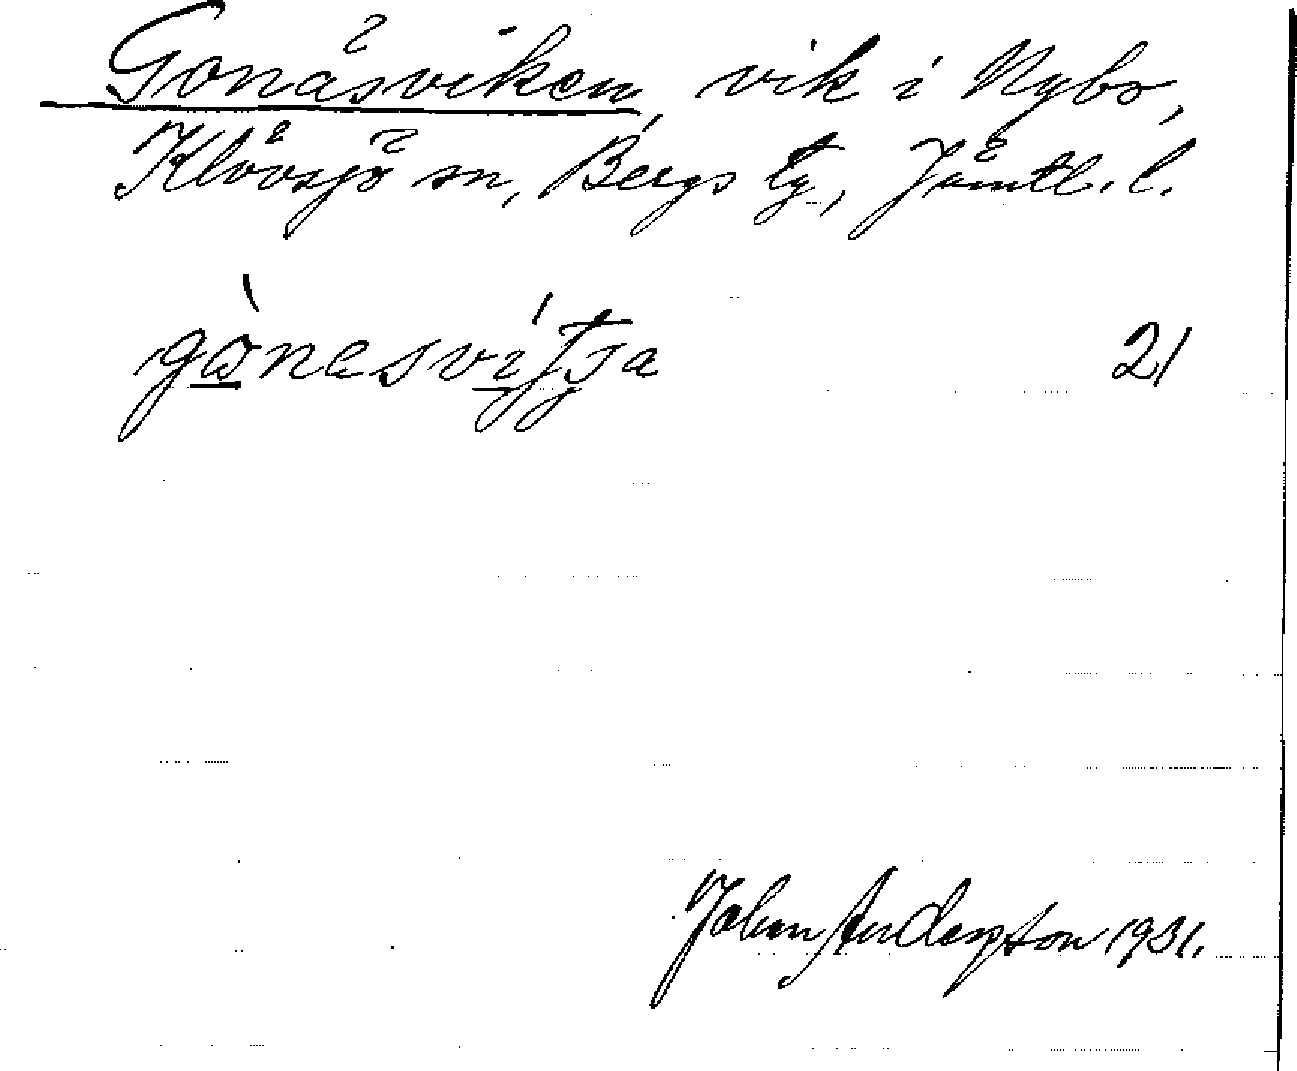 Gonäsviken, vik i Nybo,
Klövsjö sn, Bergs tg, Jämtl. l.
21
Johan Anderson 1931.